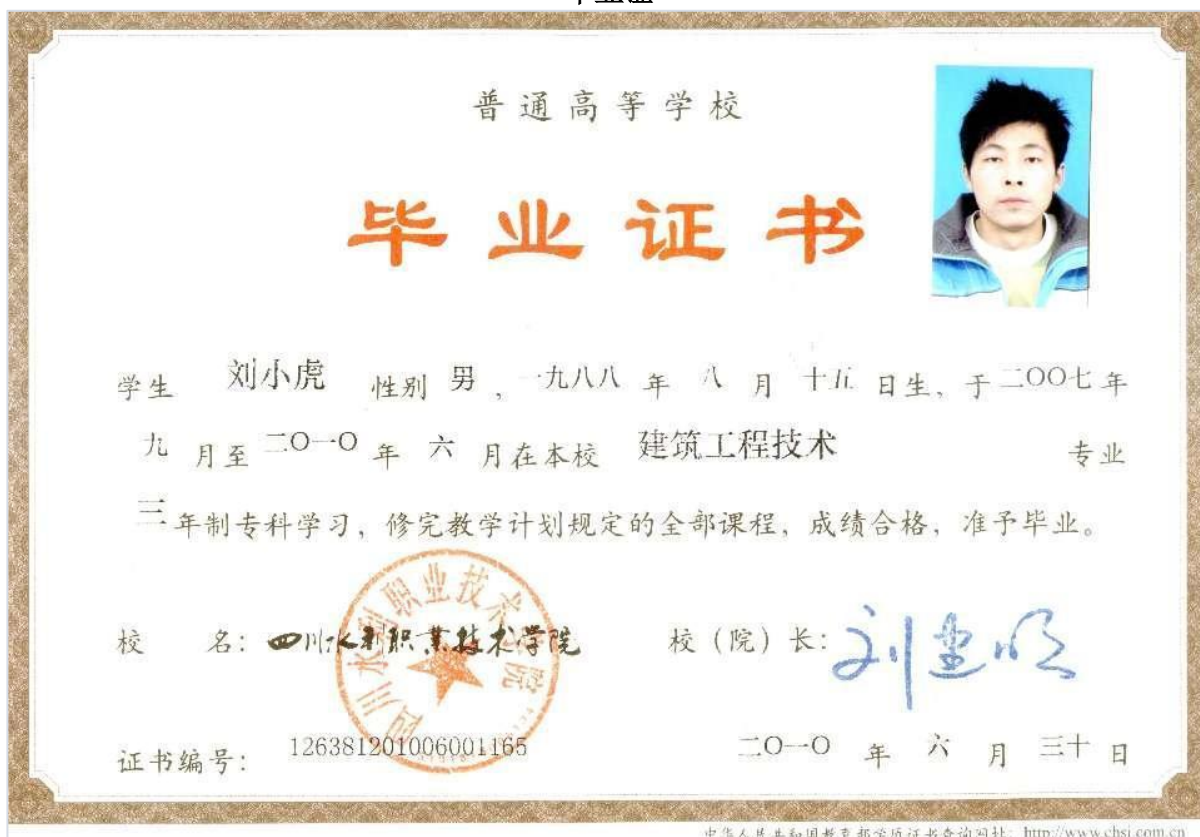 毕业证
普通高等学校
毕业证书
学生 刘小虎 性别 男 ，一九八八 年 八 月 十五 日生，于二〇〇七年
九 月至 二〇一〇 年 六 月在本校 建筑工程技术 专业
三 年制专科学习，修完教学计划规定的全部课程，成绩合格，准予毕业。
四川水利职业技术学院
校 名：四川水利职业技术学院 校（院）长：
证书编号： 126381201006001165 二〇一〇 年 六 月 三十 日
中华人民共和国教育部学历证书查询网址：http://www.chsi.com.cn